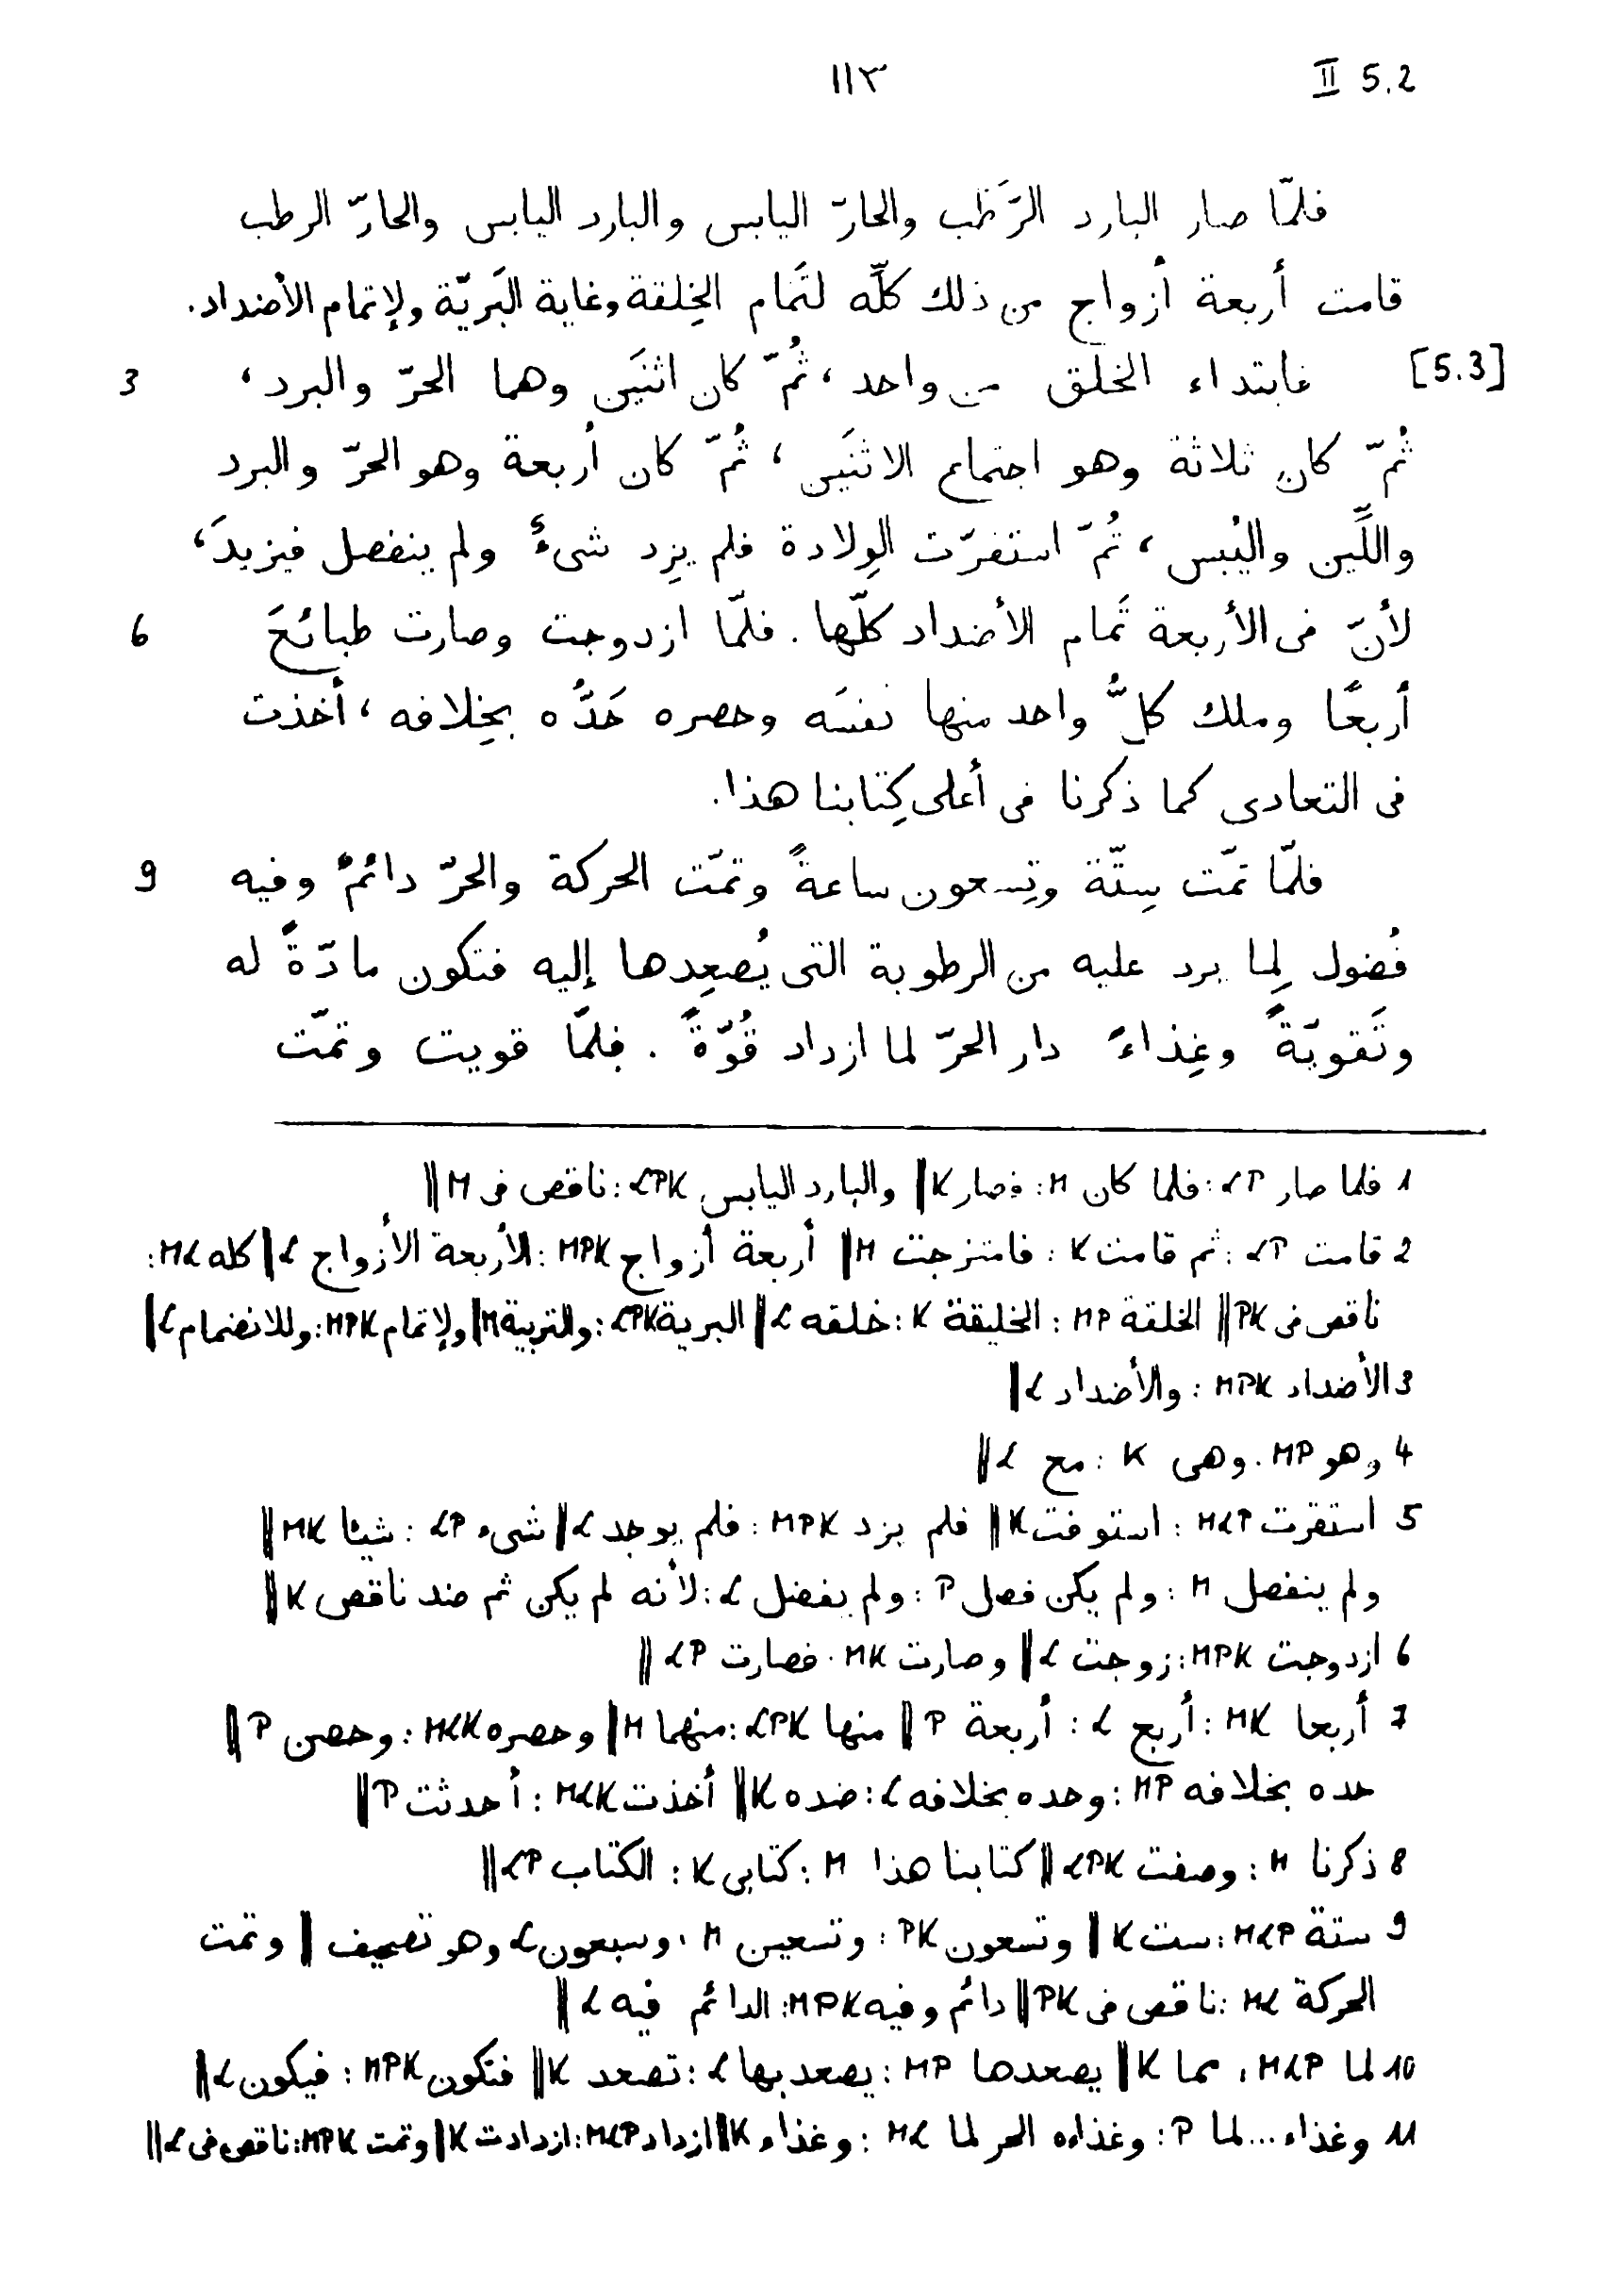 II 5.2
١١٣
فلمّا صار البارد الرَّطب والحارّ اليابس والبارد اليابس والحارّ الرطب
قامت أربعة أزواج من ذلك كلِّه لتَمام الخِلقة وغاية البَريّة ولإتمام الأضداد.
[5.3] فابتداء الخلق من واحد، ثُمّ كان اثنَين وهما الحرّ والبرد، 3
ثُمّ كان ثلاثة وهو اجتماع الاثنَين، ثُمّ كان أربعة وهو الحرّ والبرد
واللِّين واليُبس، ثُمّ استقرّت الوِلادة فلم يزِد شىءٌ ولم ينفصل فيزيدَ،
لأنّ فى الأربعة تَمام الأضداد كلّها. فلمّا ازدوجت وصارت طبائعَ 6
أربعًا وملك كلُّ واحد منها نفسَه وحصره حَدُّه بخِلافه، أخذت
فى التعادى كما ذكرنا فى أعلى كِتابنا هذا.
فلمّا تمّت سِتّة وتِسعون ساعةً وتمّت الحركة والحرّ دائمٌ وفيه 9
فُضول لِما يرد عليه من الرطوبة التى يُصعِدها إليه فتكون مادّةً له
وتَقويّةً وغِذاءً دار الحرّ لما ازداد قُوّةً. فلمّا قويت وتمّت
1 فلما صار LP: فلما كان M: فصار K‖ والبارد اليابس LPK: ناقص فى M‖
2 قامت LP: ثم قامت K: فامتزجت M‖ أربعة أزواج MPK: الأربعة الأزواج L‖ كله ML:
ناقص فى PK‖ الخلقة MP: الخليقة K: خلقه L‖ البرية LPK: والتربية M‖ ولإتمام MPK: وللانضمام L‖
3 الأضداد MPK: والأضداد L‖
4 وهو MP. وهى K: مع L‖
5 استقرت MLP: استوفت K‖ فلم يزد MPK: فلم يوجد L‖ شىء LP: شيئا MK‖
ولم ينفصل M: ولم يكن فصل P: ولم يفضل L: لأنه لم يكن ثم ضد ناقص K‖
6 ازدوجت MPK: زوجت L‖ وصارت MK. فصارت LP‖
7 أربعا MK: أربع L: أربعة P‖ منها LPK: منهما M‖ وحصره MLK: وحصن P‖
حده بخلافه MP: وحده بخلافه L: ضده K‖ أخذت MLK: أحدثت P‖
8 ذكرنا M: وصفت LPK‖ كتابنا هذا M: كتابى K: الكتاب LP‖
9 ستة MLP: ست K‖ وتسعون PK: وتسعين M، وسبعون L وهو تصحيف‖ وتمت
الحركة ML: ناقص فى PK‖ دائم وفيه MPK: الدائم فيه L‖
10 لما MLP، مما K‖ يصعدها MP: يصعد بها L: تصعد K‖ فتكون MPK: فيكون L‖
11 وغذاء...لما P: وغذاءه الحر لما ML: وغذاء K‖ ازداد MLP: ازدادت K‖ وتمت MPK: ناقص فى L‖